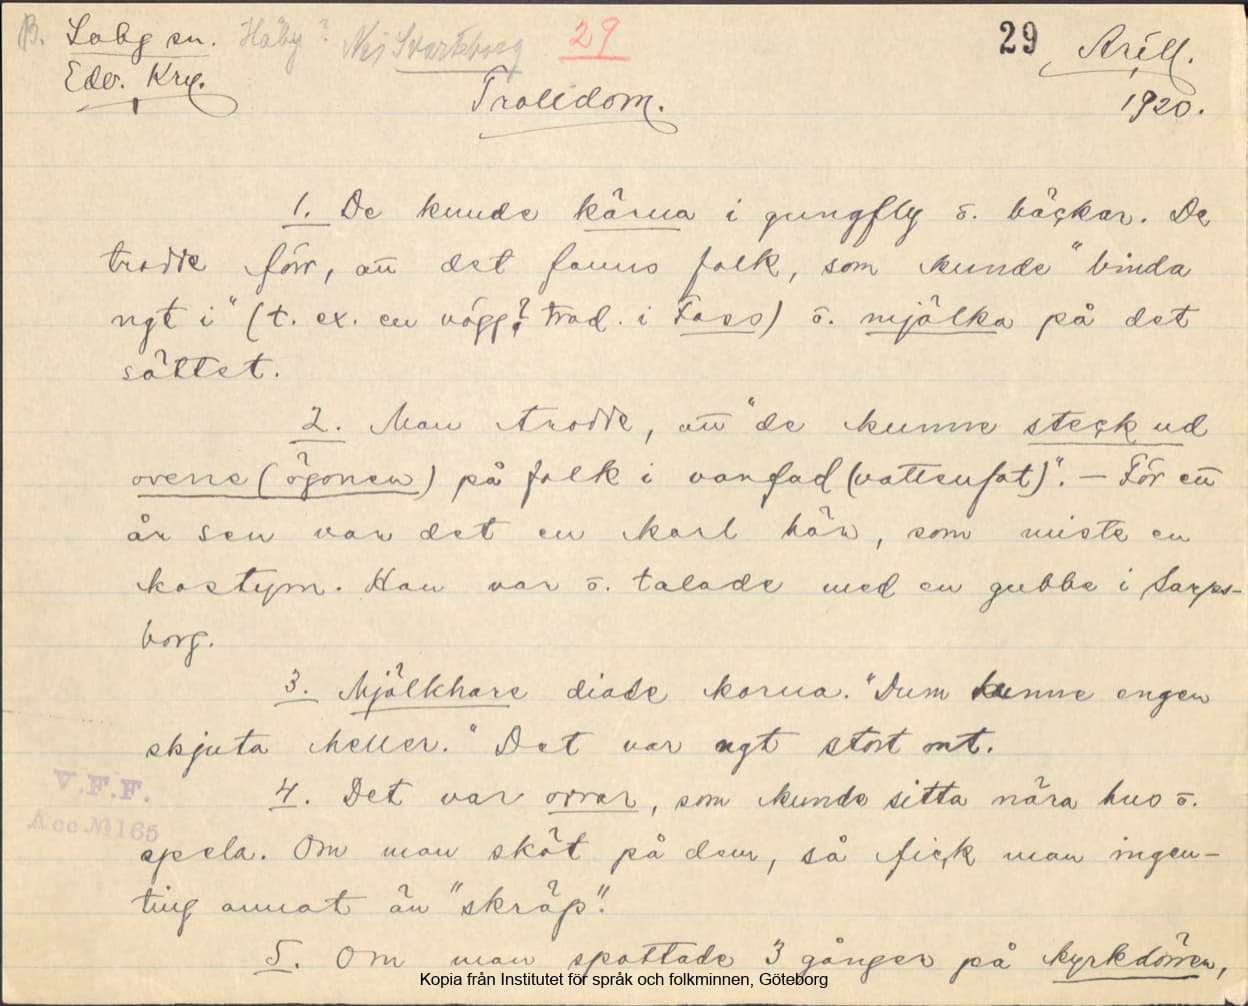 B. Låby sn. Håby? Nej Svarteborg 29 29 Arill.
Edv. Kry. Trolldom. 1920.
1. De kunde kärna i gungfly ō. bäckar. De
trodde förr, att det fanns folk, som kunde "binda
ngt i" (t. ex. en vägg? trad. i Foss) ō. mjölka på det
sättet.
2. Man trodde, att "de kunne steck ud
ovene (ögonen) på folk i vanfad (vattenfat)". – För ett
år sen var det en karl här, som miste en
kostym. Han var ō. talade med en gubbe i Sarps-
borg.
3. Mjölkhare diade korna. "Dum kunne engen
skjuta heller." Det var ngt stort ont.
V.F.F.
4. Det var orrar, som kunde sitta nära hus ō.
Acc. № 165
spela. Om man sköt på dem, så fick man ingen-
ting annat än "skräp".
5. Om man spottade 3 gånger på kyrkdörren,
Kopia från Institutet för språk och folkminnen, Göteborg